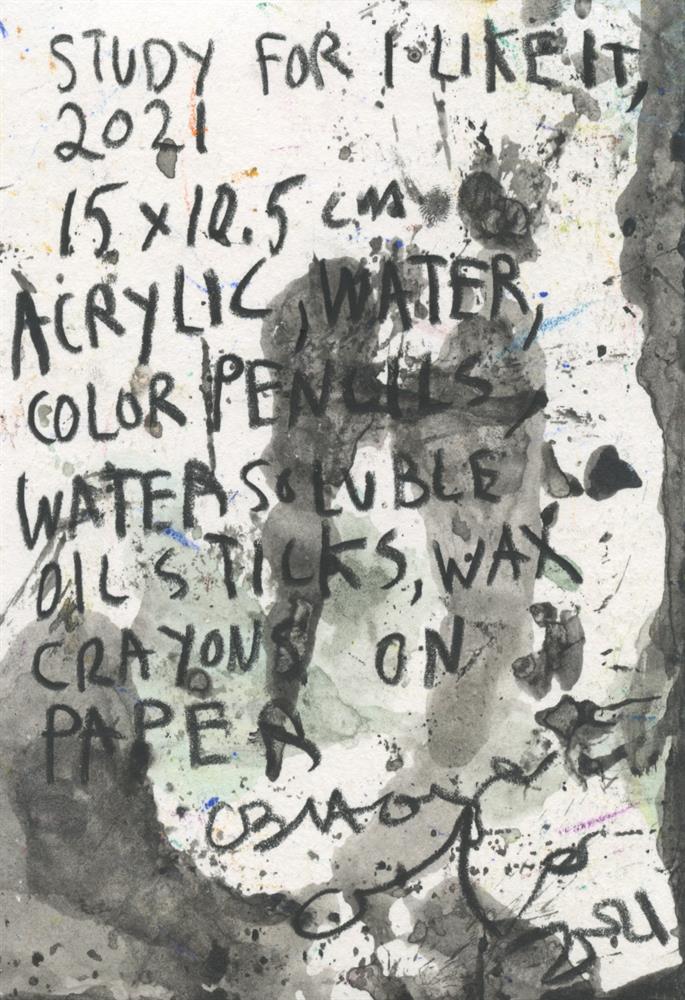 STUDY FOR I LIKE IT,
2021
15 x 10.5 cm
ACRYLIC, WATER,
COLOR PENCILS,
WATERSOLUBLE
OIL STICKS, WAX
CRAYONS ON
PAPER